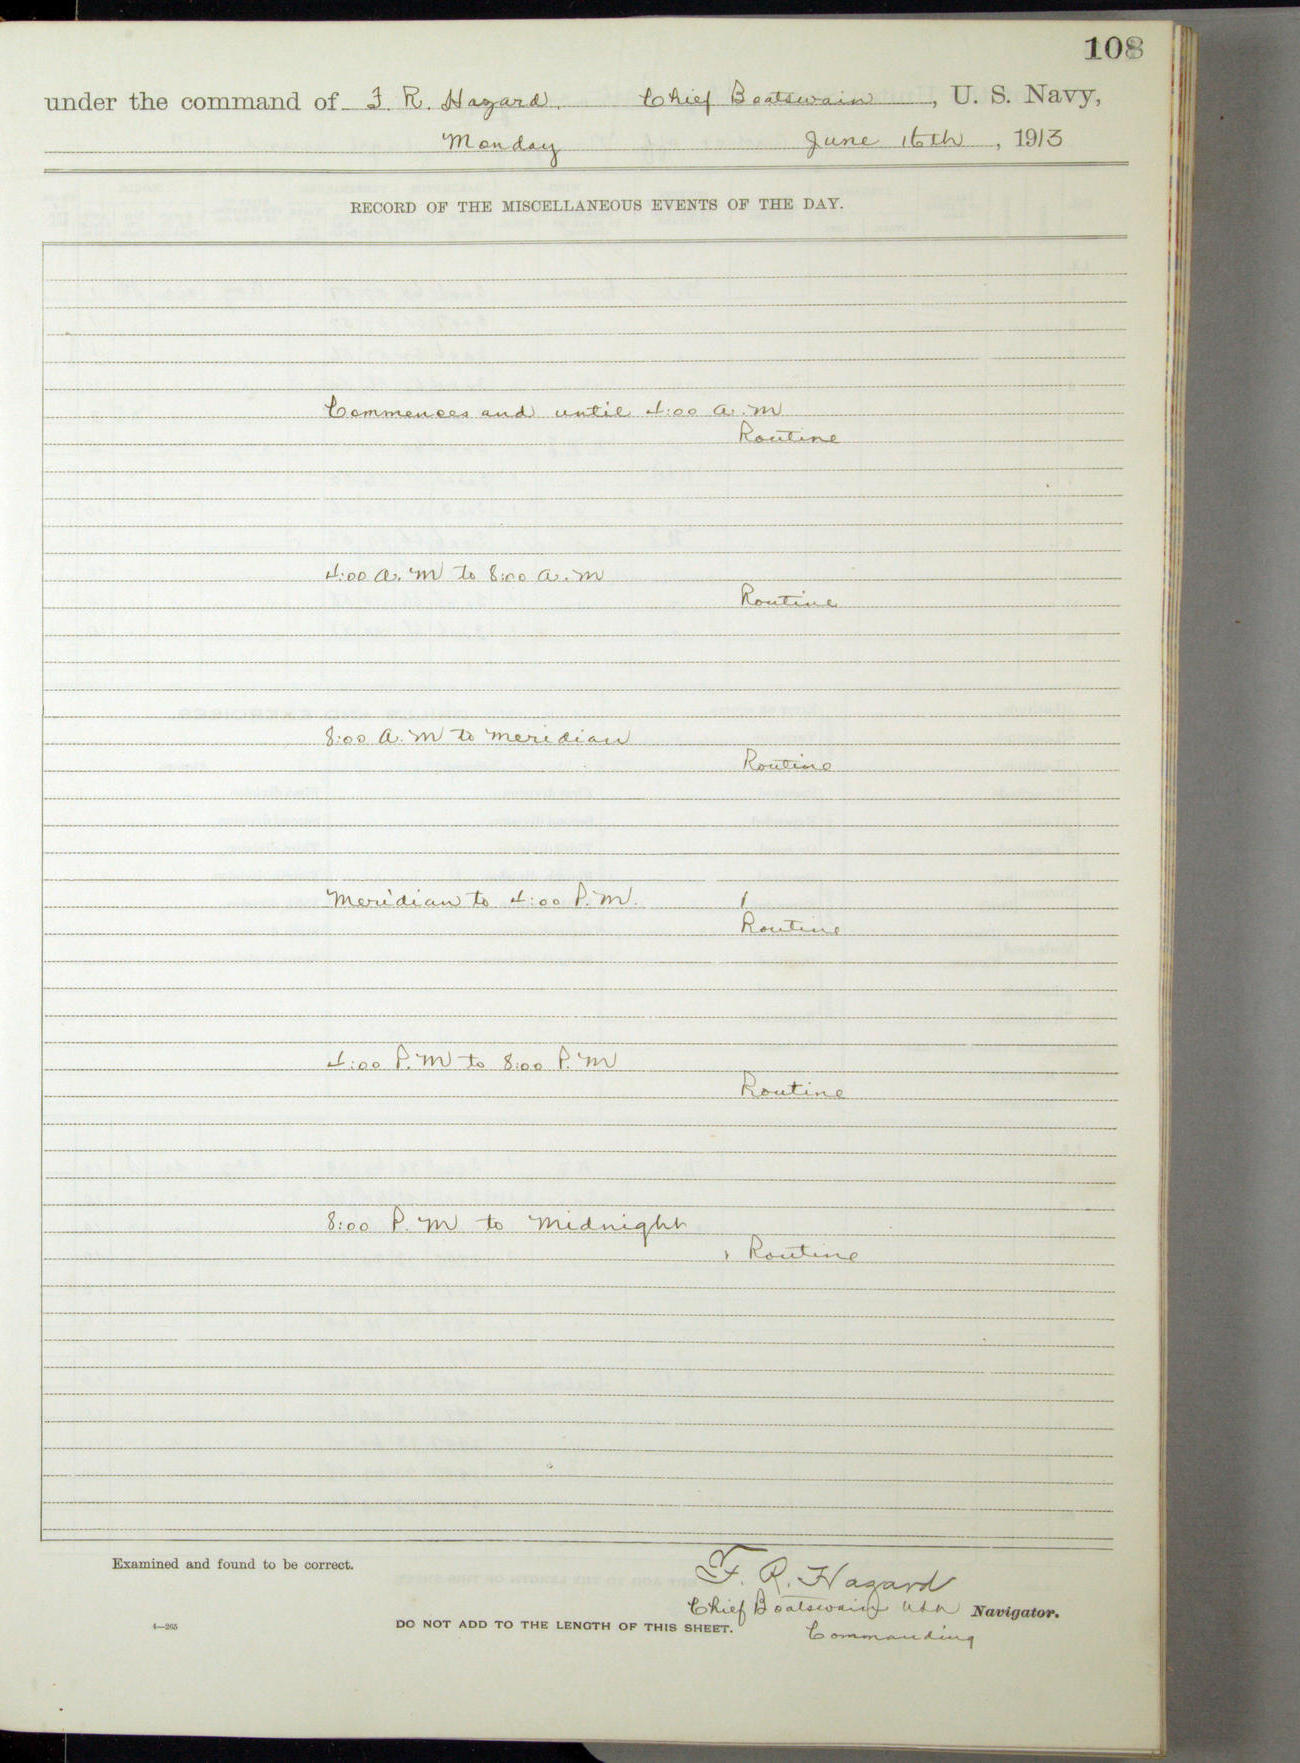 108
under the command of F. R. Hazard. Chief Boatswain, U. S. Navy,
Monday June 16th, 1913
RECORD OF THE MISCELLANEOUS EVENTS OF THE DAY.
Commences and until 4:00 a.m
Routine
4:00 a.m to 8:00 a.m
Routine
8:00 a.m to meridian
Routine
Meridian to 4:00 P.M.
Routine
4:00 P.M to 8:00 P.M
Routine
8:00 P.M to Midnight
Routine
Examined and found to be correct.
F. R. Hazard
Chief Boatswain USN Navigator.
4—265
DO NOT ADD TO THE LENGTH OF THIS SHEET.
Commanding